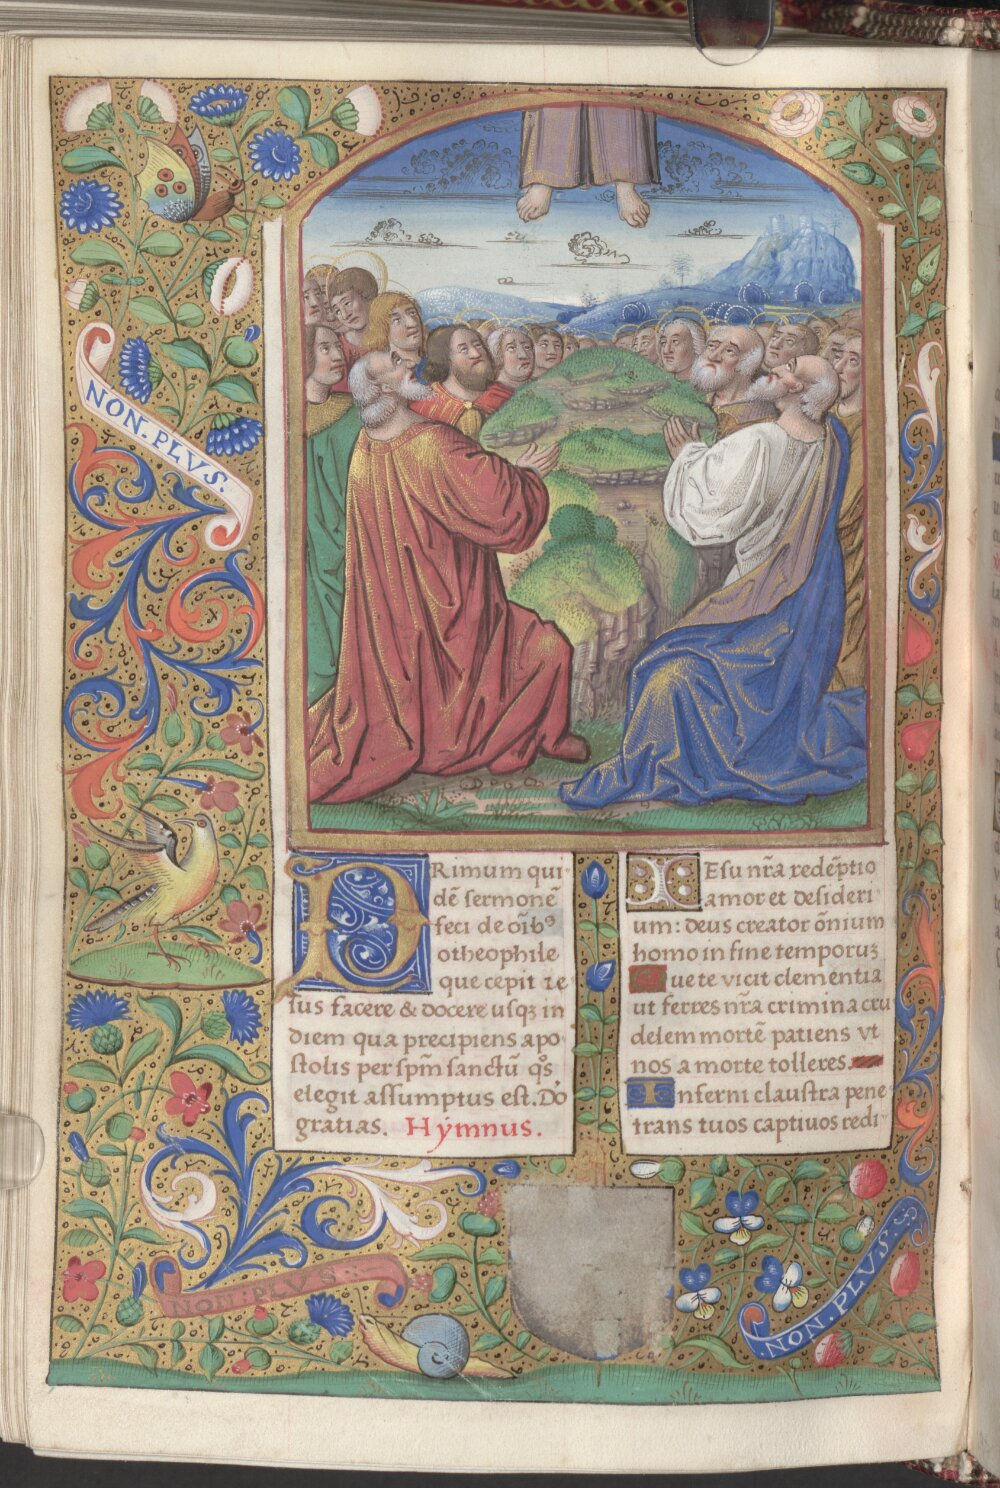 NON.PLVS.
PRimum qui
dē sermonē
feci de oīb⁹
otheophile
que cepit ie
sus facere & docere usqꝫ in
diem qua precipiens apo
stolis per spm̄ sanctū q̄s
elegit assumptus est. Do
gratias. Hẏmnus.
IEsu nr̄a redēptio
amor et desideri
um: deus creator ōnium
homo in fine temporuꝫ
Que te vicit clementia
ut ferres nr̄a crimina cru
delem mortē patiens vt
nos a morte tolleres.
Inferni claustra pene
trans tuos captiuos redi
NON:PLVS:
.NON.PLVS.